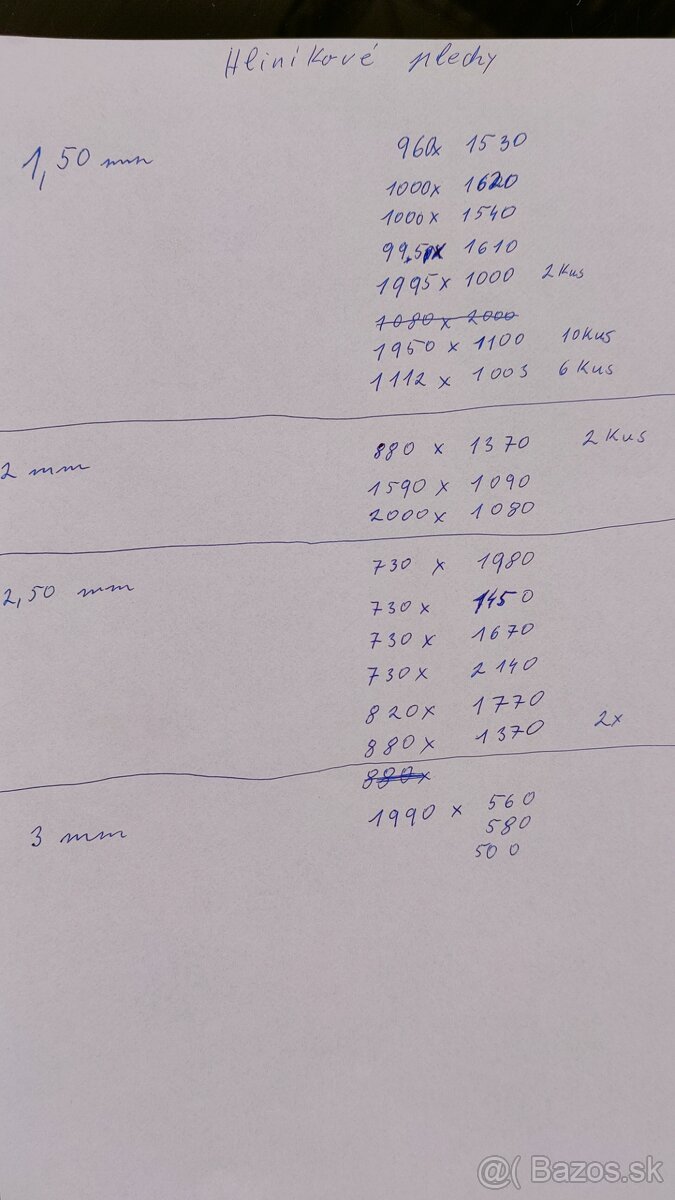 Hliníkové plechy
1,50 mm
960x 1530
1000x 1620
1000x 1540
1610
1995x 1000 2Kus
1080x 2000
1950x 1100 10Kus
1112x 1003 6Kus
2 mm
880 x 1370 2Kus
1590x 1090
2000x 1080
2,50 mm
730 x 1980
730x 1450
730x 1670
730x 2140
820x 1770
880x 1370 2x
880x
3 mm
1990 x 560
580
500
@( Bazos.sk